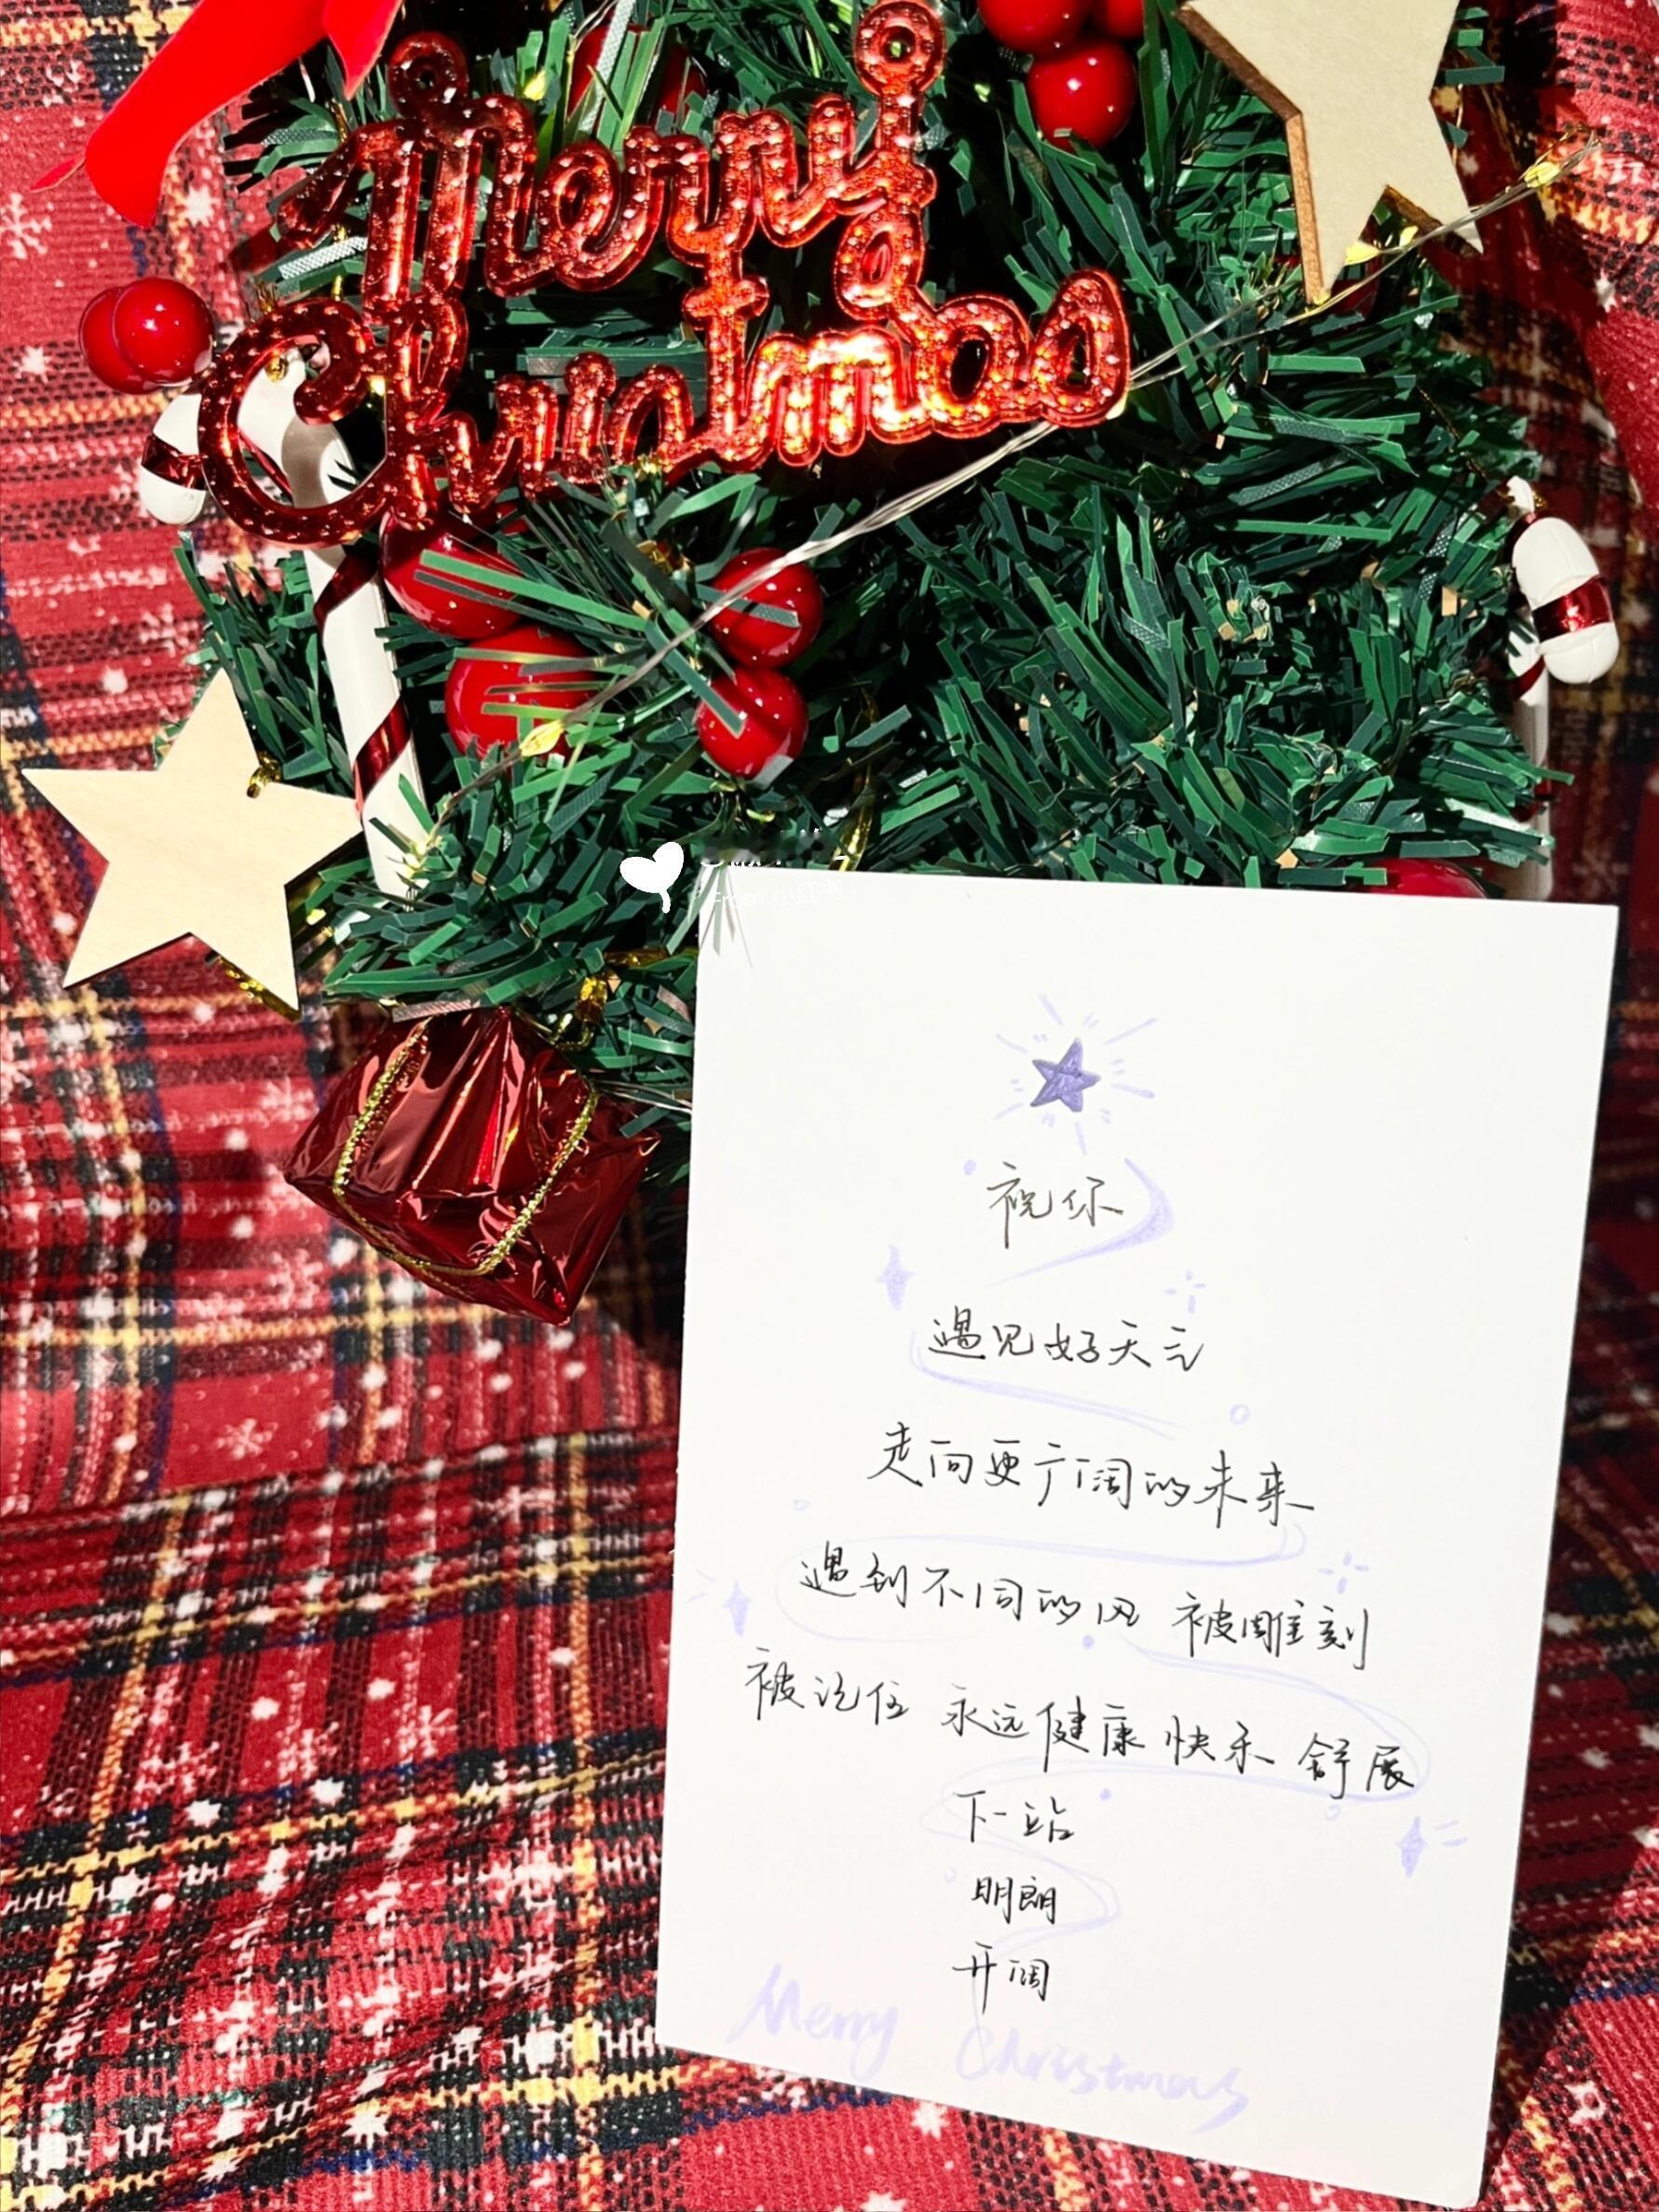 Merry
Christmas
From 小红书
祝你
遇见好天气
走向更广阔的未来
遇到不同的风 被雕刻
被记住 永远健康 快乐 舒展
下一站
明朗
开阔
Merry Christmas